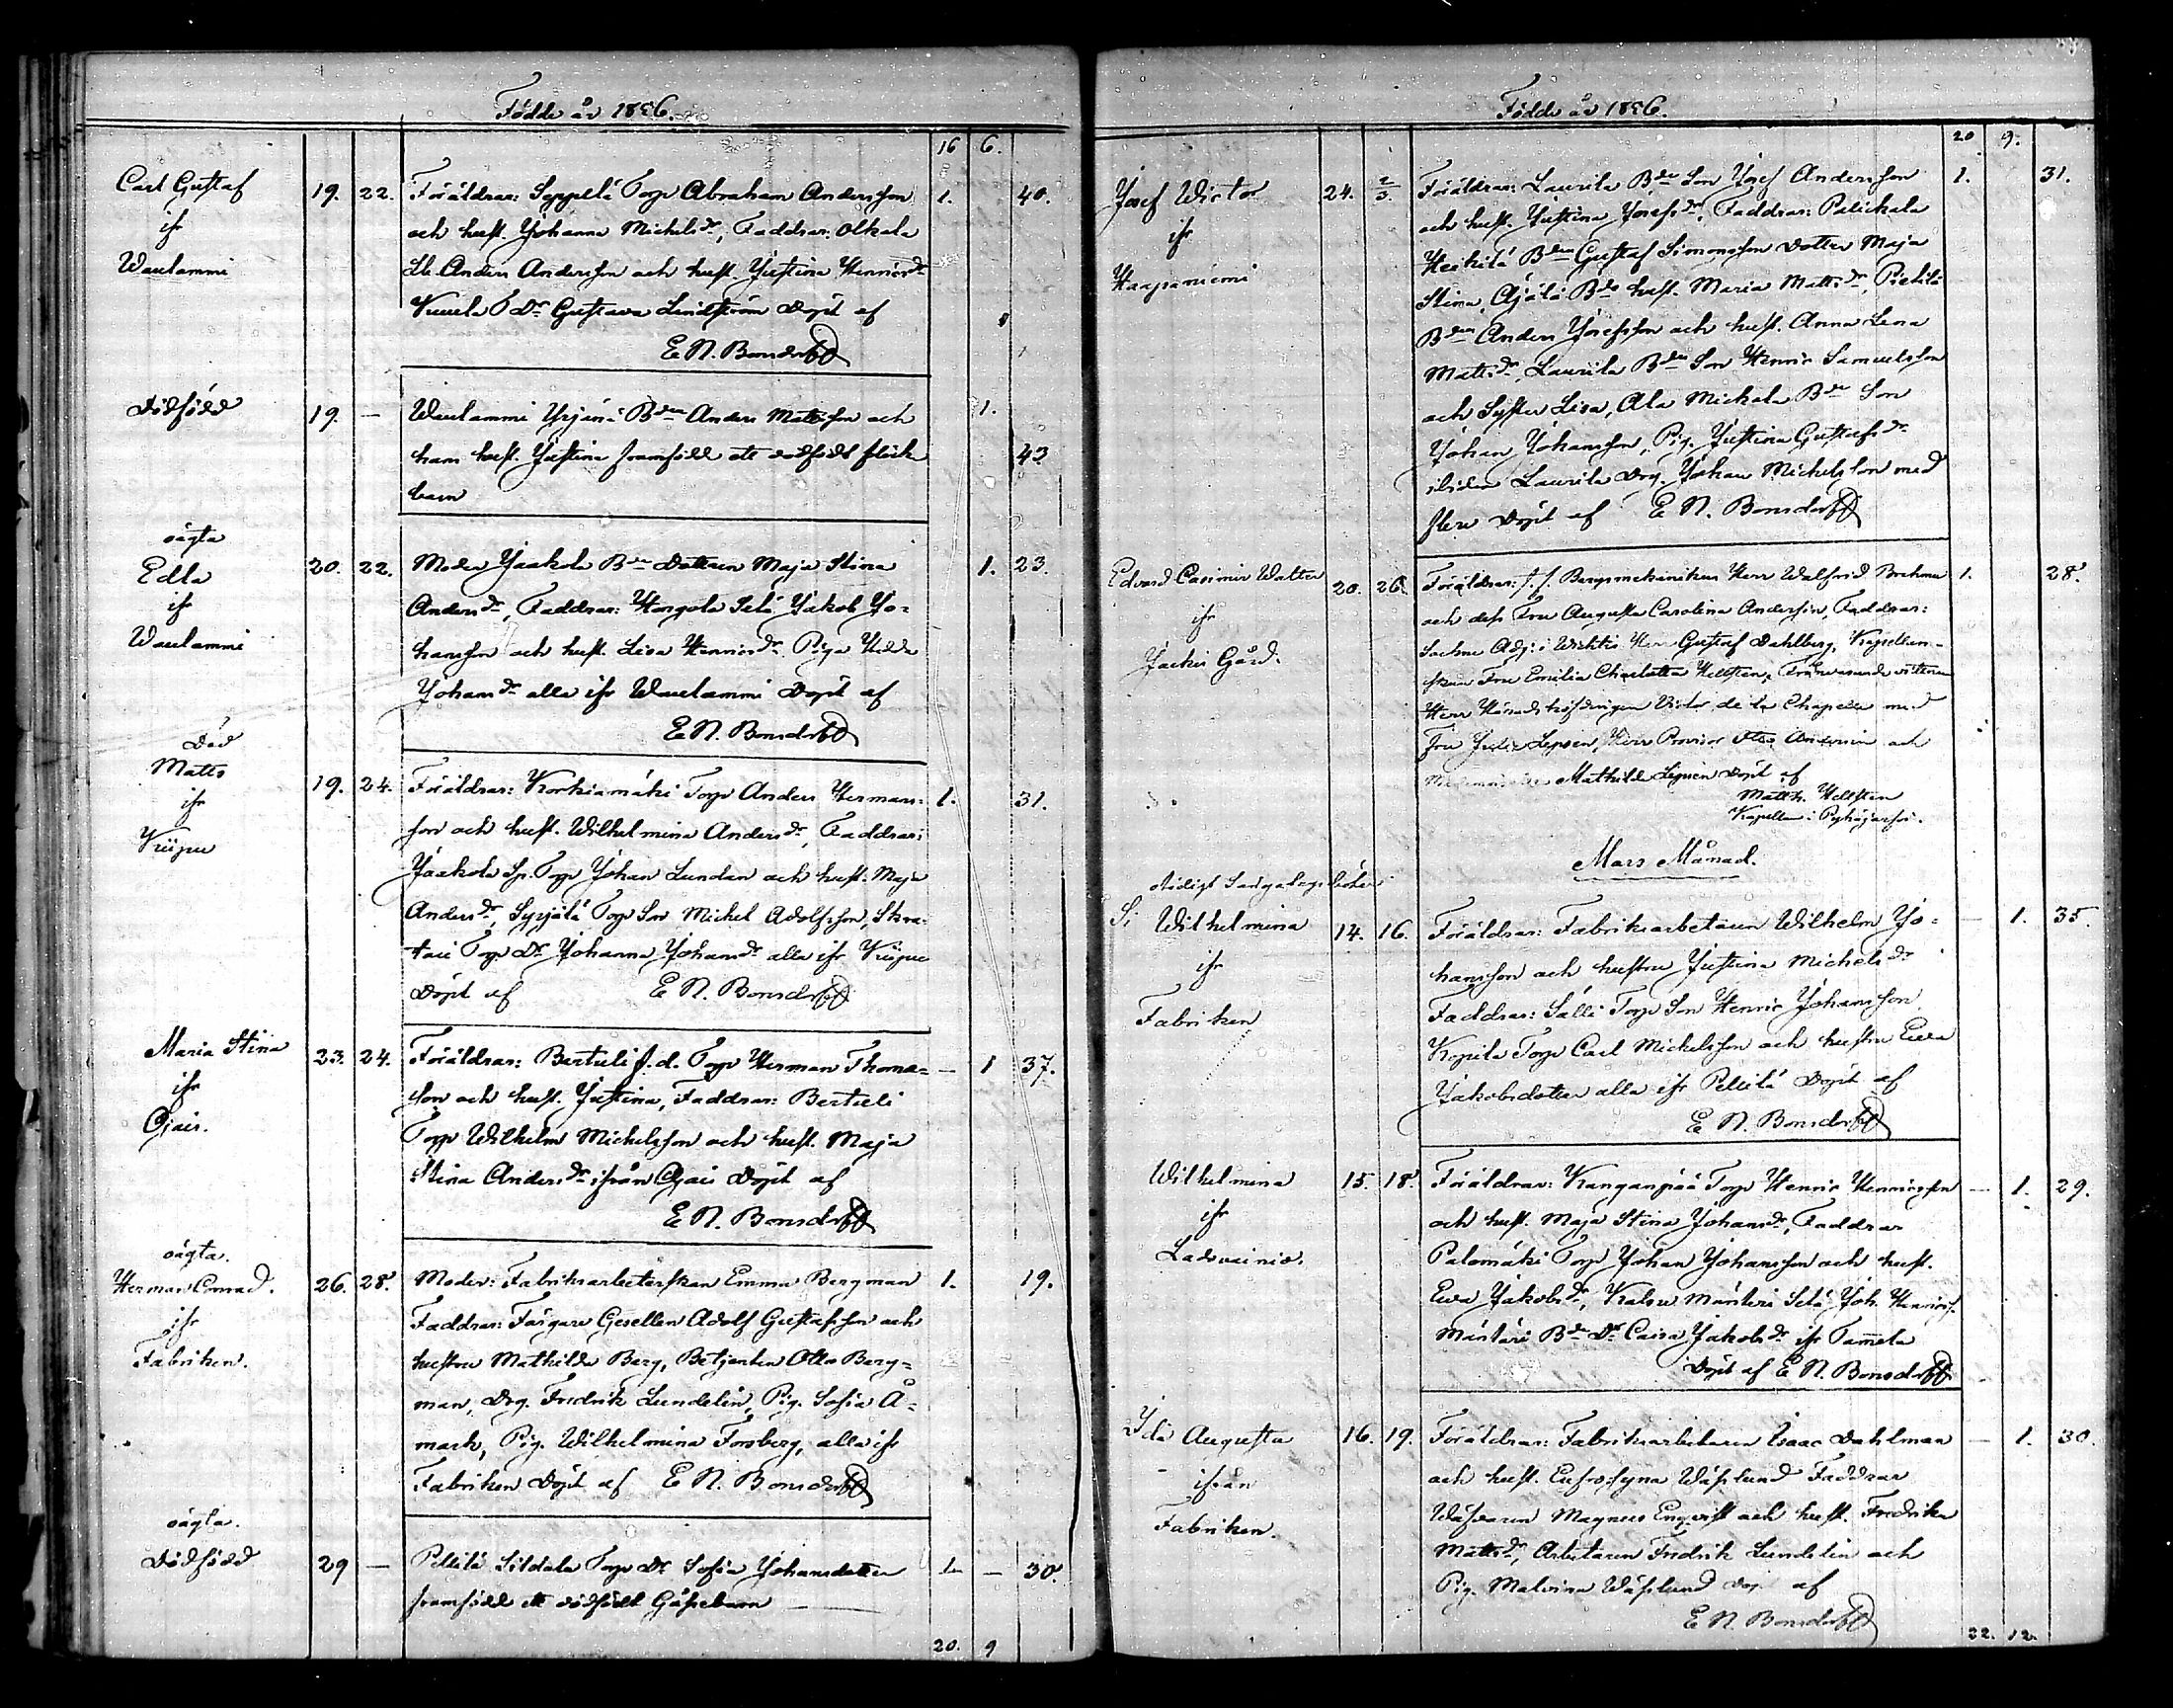 Födde år 1836.
16 6.
Carl Gustaf
ifr
Waulammi
19. 22. Föräldrar: Seppelä Torp Abraham Andersson 1. 40.
och hust. Johanna Michelsdr, Faddrar: Olkala
Anders Andersson och hust. Justina Henricsdr
Dr Gustava Lindström Döpt af
E N. Bonsdorff
Dödfödd 19. — Waulammi Yrjänä Bden Anders Mattsson och 1.
hans hust. Justina framfödd ett dödfödt flicke 43
barn
oägta
Edla
ifr
Waulammi
20. 22. Moder Jaakola Bde Dottren Maja Stina 1. 23.
Andersdr, Faddrar: Hongola Jakob Jo=
hansson och hust. Lisa Henricsdr Piga Hedda
Johansdr alla ifr Waulammi Döpt af
E N. Bonsdorff
Död
Matts
ifr
19. 24. Föräldrar: Korkiamäki Torp Anders Hermans= 1. 31.
son och hust. Wilhelmina Andersdr, Faddrar:
Jaakola Sp. Torp Johan Lundan och hust. Maja
Andersdr, Syrjälä Torp Son Michel Adolfsson,
Torp Dr Johanna Johansdr alla ifr
Döpt af E N. Bonsdorff
Maria Stina
ifr
Ojais.
23. 24. Föräldrar: Bertuli f.d. Torp Herman Thoma= — 1 37.
son och hust. Justina, Faddrar: Bertuli
Torp Wilhelm Michelsson och hust. Maja
Stina Andersdr ifrån Ojais Döpt af
E N. Bonsdorff
oägta.
Herman Conrad.
ifr
Fabriken.
26. 28. Moder: Fabriksarbeterskan Emma Bergman 1. 19.
Faddrar: Färgare Gesellen Adolf Gustafsson och
hustru Mathilda Berg, Betjenten Otto Berg=
man, Drg. Fredrik Lundelin, Pig. Sofia Å=
mark, Pig. Wilhelmina Forsberg, alla ifr
Fabriken Döpt af E N. Bonsdorff
oägta.
Dödfödd 29 — Torp Dr Sofia Johansdotter 1. — 30.
framfödd ett dödfödt Gåssebarn —
20. 9
Födde år 1836.
20 9.
Josef Wictor
ifr
Haapaniemi
24. 2/3. Föräldrar: Laurila Bde Son Josef Andersson 1. 31.
och hust. Justina Josefsdr, Faddrar:
Heikilä Bden Gustaf Simonsson Dotter Maja
Stina, Bde hust. Maria Mattsdr,
Bden Anders Josefsson och hust. Anna Lena
Mattsdr, Laurila Bde Son Henric Samuelsson
och Syster Lisa, Ala Mickala Bde Son
Johan Johansson, Pig. Justina Gustafsdr
Laurila Drg. Johan Michelsson med
flere Döpt af E N. Bonsdorff
Edvard Casimir Walter
ifr
Gård.
20. 26. Föräldrar: Bergsmekanikus Herr Walfrid Brehmer 1. 28.
och dess Fru Augusta Carolina Andersin, Faddrar:
Sockne Adj. i Wichtis Herr Gustaf Dahlberg, Kapellan=
skan Fru Emilia Charlotta Hellsten, Frånvarande vittnen
Herr Häradshöfdingen Victor de la Chapelle med
Fru Lepsen, Herr Provisor Andersin och
Mathilda Lepsen Döpt af
Matth. Hellsten
Kapellan i Pyhäjärvi.
Mars Månad.
Wilhelmina
ifr
Fabriken
14. 16. Föräldrar: Fabriksarbetaren Wilhelm Jo= — 1. 35.
hansson och hustru Justina Michelsdr
Faddrar: Sälli Torp Son Henric Johansson
Torp Carl Michelsson och hustru Eva
Jakobsdotter alla ifr Pellilä Döpt af
E N. Bonsdorff
Wilhelmina
ifr
15. 18. Föräldrar: Kanganpää Torp Henric Henricsson — 1. 29.
och hust. Maja Stina Johansdr, Faddrar
Palomäki Torp Johan Johansson och hust.
Eva Jakobsdr, Joh. Henricss.
Mäntäri Bde Dr Caisa Jakobsdr ifr Tammela
Döpt af E N. Bonsdorff
Ida Augusta
ifrån
Fabriken.
16. 19. Föräldrar: Fabriksarbetaren Isaac Dahlman — 1. 30.
och hust. Eufrosyna Wäslund Faddrar
Wäfvaren Magnus Enqvist och hust. Fredrika
Mattsdr, Arbetaren Fredrik Lundelin och
Pig. Malvina Wäslund Döpt af
E N. Bonsdorff
22. 12.